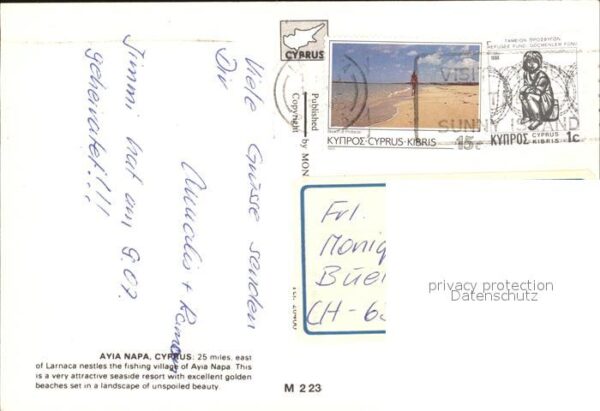 Viele Grüsse senden
Dir
+ Roman
Jimmi hat am 8.07.
geheiratet!!!
AYIA NAPA, CYPRUS: 25 miles, east
of Larnaca nestles the fishing village of Ayia Napa. This
is a very attractive seaside resort with excellent golden
beaches set in a landscape of unspoiled beauty.
M 2 23
CYPRUS
Published
Copyright by MON
ΚΥΠΡΟΣ·CYPRUS·KIBRIS
15c
ΤΑΜΕΙΟΝ ΠΡΟΣΦΥΓΩΝ
REFUGEE FUND · GÖÇMENLER FONU
ΚΥΠΡΟΣ
CYPRUS
KIBRIS
1c
VISIT
SUNNY ISLAND
Frl.
Moniq
CH-6
privacy protection
Datenschutz